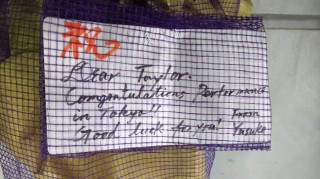 祝
Dear Taylor.
Congratulations Performance
in Tokyo!!
Good luck for you! From
Yusuke